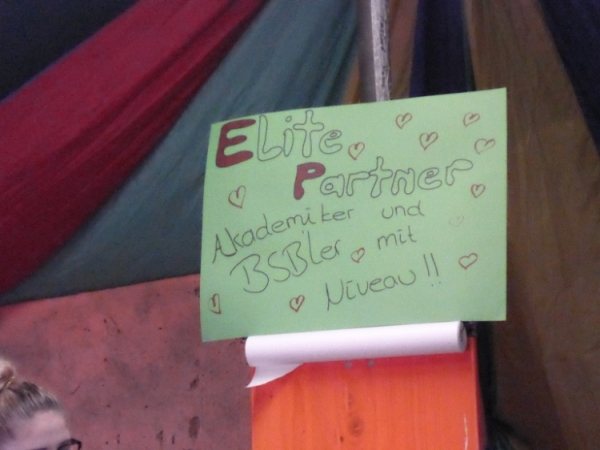 Elite
Partner
Akademiker und
BSB'ler mit
Niveau!!